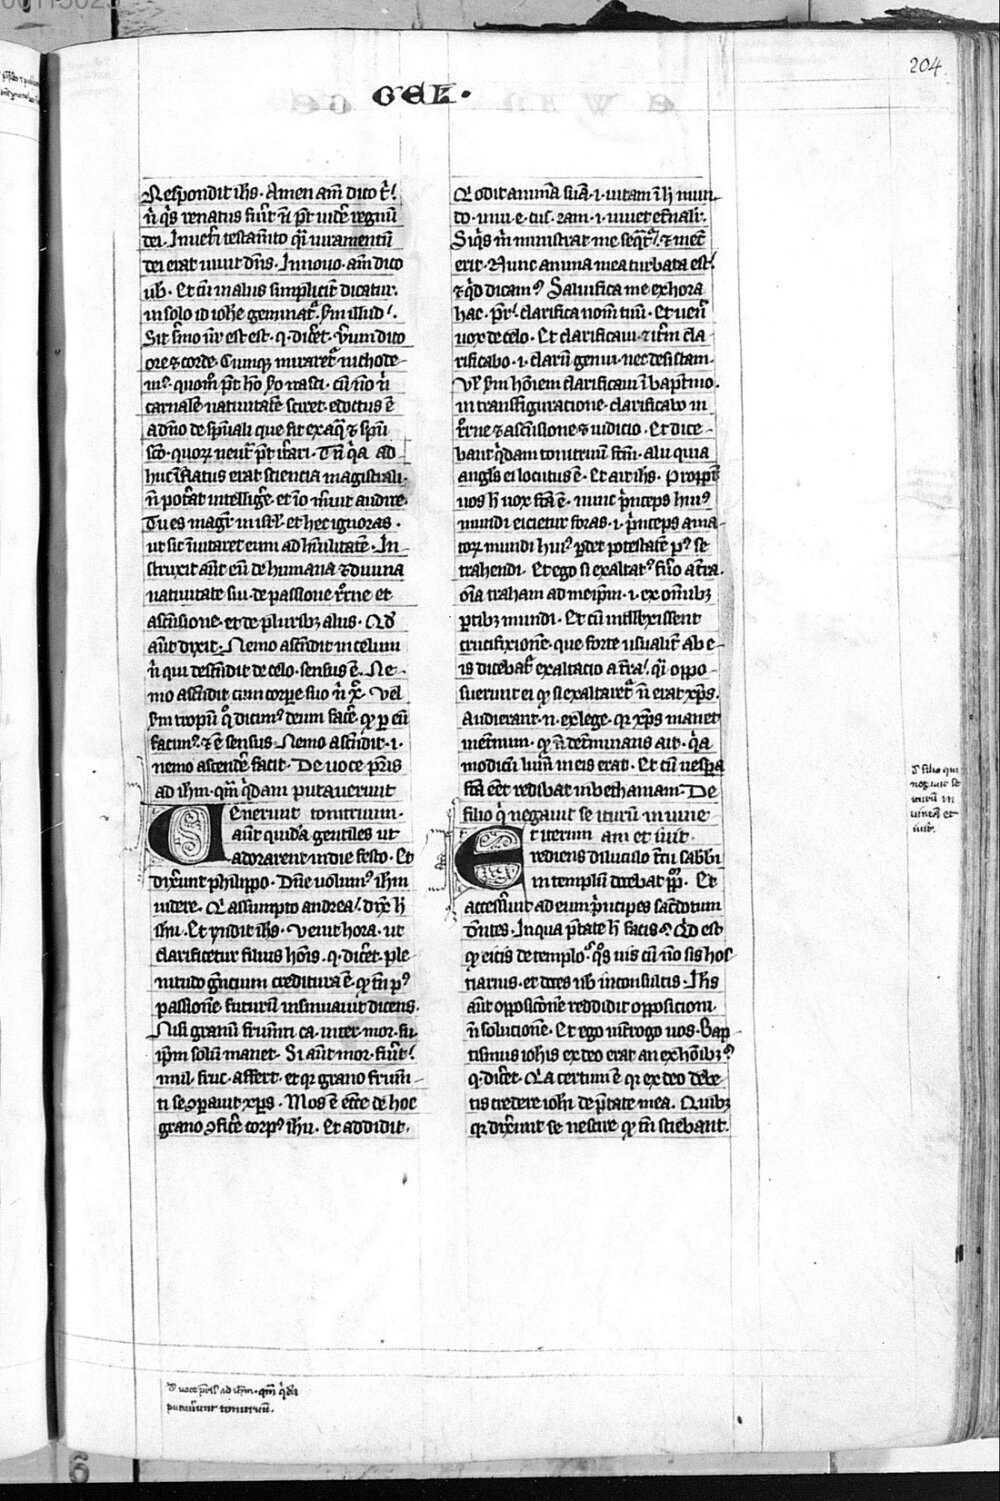 204
GEL.
Respondit ihs. Amen am dico t.
n qs renatus fuit n pt vide regnu
dei. In veti testamto qi iuramentu
dei erat vivit dns. In novo am dico
vb. Et cu malus simplicit dicatur.
in solo io iohe geminat. sm illud.
Sit smo vr est est. q. dicet. verum dico
ore & corde. Cumq miraret nichode-
m. quom pt ho so nasci. cu no n
carnale nativitate sciret. edoctus e
a dno de spuali que fit ex aq & spu
sco. quoz neut pt it'ari. Tn qa ad
huc iflatus erat sciencia magistrali.
n potat intellige. et io mruit audire.
Tu es magr in isrl et hec ignoras.
ut sic ivitaret eum ad humilitate. In-
struxit aut eu de humana & divina
nativitate sui. de passione rrne et
ascensione. et de pluribz aliis. Qd
aut dixit. Nemo ascendit in celum
n qui descendit de celo. sensus e. Ne-
mo ascendit cum corpe suo n x. Vel
sm tropu q dicim deum face q p eu
facim. & e sensus. Nemo ascendit. i.
nemo ascende facit. De voce pris
ad ihm. qm qdam putaverunt
Venerunt tonitruum.
aut quida gentiles ut
adorarent in die festo. Et
dixerunt philippo. Dne volum ihm
videre. Q assumpto andrea. dix h
ihu. Et rndit ihs. Venit hora. ut
clarificetur filius hois. q. dicet. ple-
nitudo gencium creditura e. q tn p
passione. futuru insinuavit dicens.
Nisi granu frumti ca. inter. mor. fu.
ipm solu manet. Si aut mor. fuit.
mul. fruc. affert. et qr grano frum-
ti se oparavit xps. Mos e ecce de hoc
grano ofice corp ihu. Et addidit.
Q odit anima sua. i. vitam i h mun
do. in vi. e. cus. eam. i. vivet etnalit.
Siqs m ministrat me seqt. & mec
erit. Nunc anima mea turbata est.
& qd dicam. Salvifica me ex hora
hac. Pr. clarifica nom tuu. Et veni
vox de celo. Et clarificavi. & itm cla
rificabo. i. claru genui. nec desistam.
Vl sm hoiem clarificavi i baptimo.
in transfiguracione. clarificabo in
rrne & ascensione & iudicio. Et dice-
bant qdam tonitruu fcm. alii quia
angls ei locutus e. Et ait ihs. Propt
vos h vox fca e. nunc pnceps hui
mundi eicietur foras. i. pnceps ama-
toz mundi hui pdet potestate p se
trahendi. Et ego si exaltat fuo a tra.
oia traham ad meipm. i. ex omibz
ptibz mundi. Et cu intllexissent
crucifixione. que forte usualit ab e-
is dicebat exaltacio a tra. qi oppo-
suerunt ei q si exaltaret n erat xps.
Audierant. n. ex lege. qr xps manet
in etnum. q n determinans ait. qa
modicu lum in eis erat. Et cu vespa
fca eet redibat in bethaniam. De
filio q negavit se iturum in vine
Et iterum am et ivit
rediens diluculo tcu sabbi
in templu docebat ppm. Et
accesserunt ad eum pncipes sacdotum
dntes. In qua ptate h facis. Qd est
q eicis de templo. qs vis cu no sis hos
tiarius. et doces nb inconsultis. Ihs
aut oppositone reddidit opposicioni.
n solucione. Et ego introgo vos. Bap
tismus iohis ex deo erat an ex hoibz.
q. dicet. Qa certum e qr ex deo debe-
tis credere iohi de ptate mea. Quibz
qr dixerunt se nescire q tn sciebant.
d filio qui
negavit se
iturum in
vineam et
ivit.
d voce pris ad ihm. qm qda
putaverunt tonitruu.